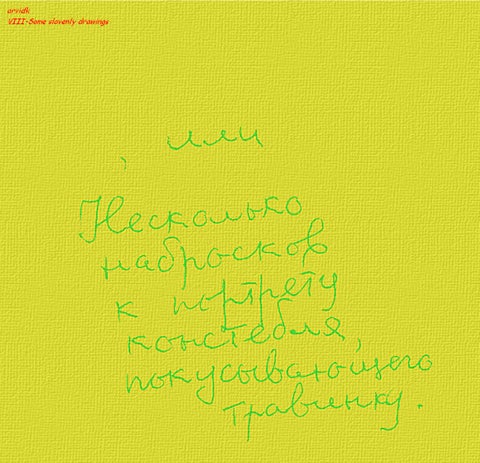 arvidk
VIII-Some slovenly drawings
, или
Несколько
набросков
к портрету
констебля,
покусывающего
травинку.